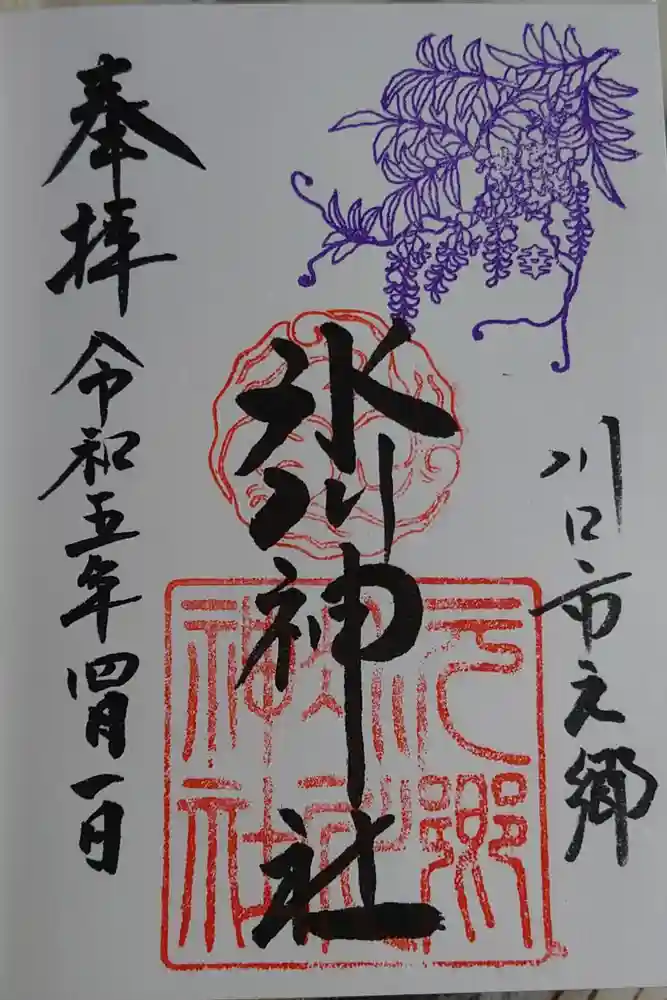 川口市元郷
氷川神社
元郷
氷川
神社
奉拝 令和五年四月一日